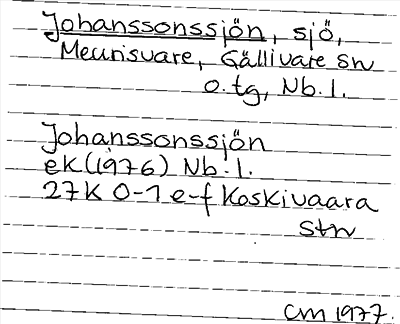 Johanssonssjön, sjö,
Meurisvare, Gällivare sn
o.tg, Nb.l.
Johanssonssjön
ek(1976) Nb.l.
27K 0-1 e-f Koskivaara
stn
CM 1977.